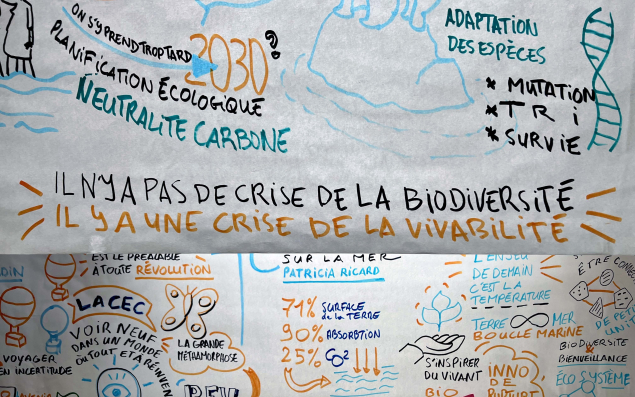 ON S'Y PREND TROP TARD
2030?
PLANIFICATION ÉCOLOGIQUE
NEUTRALITE CARBONE
ADAPTATION
DES ESPÈCES
* MUTATION
* TRI
* SURVIE
IL N'Y A PAS DE CRISE DE LA BIODIVERSITÉ
IL Y A UNE CRISE DE LA VIVABILITÉ
EST LE PRÉALABLE
À TOUTE RÉVOLUTION
LA CEC
VOIR NEUF
DANS UN MONDE
OÙ TOUT EST À RÉINVEN
VOYAGER
EN INCERTITUDE
LA GRANDE
MÉTAMORPHOSE
SUR LA MER
PATRICIA RICARD
71% SURFACE
de la TERRE
90% ABSORBTION
25% CO2
L'ENJEU
DE DEMAIN
C'EST LA
TEMPÉRATURE
TERRE ∞ MER
BOUCLE MARINE
S'INSPIRER
DU VIVANT
BIO
INNO
DE
RUPTURE
ÊTRE CON
DE PET
BIODIVERSITÉ
BIENVEILLANCE
ÉCOSYSTÈME